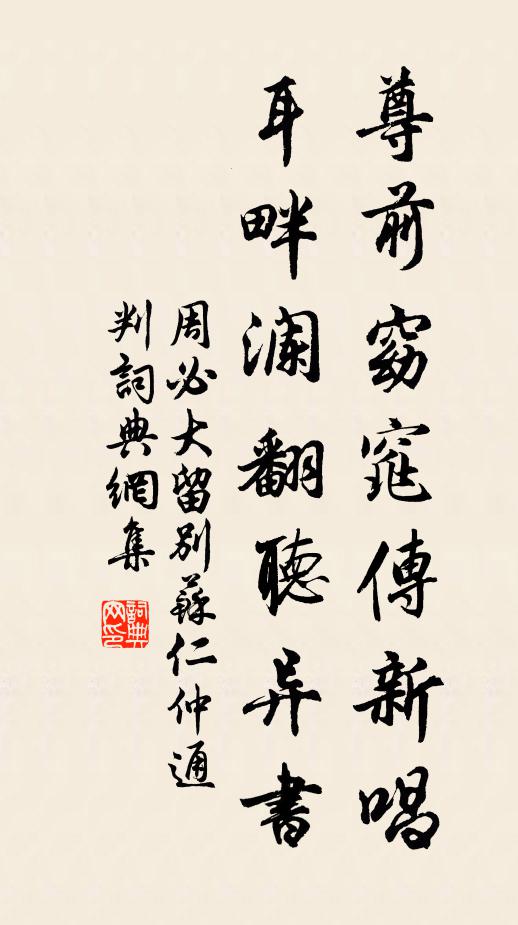 尊前窈窕傳新唱
耳畔瀾翻聽异書
周必大留別蘇仁仲通
判詞典網集
詞典
网印